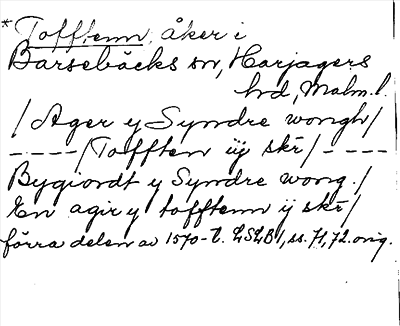 *Tofftenn, åker i
Barsebäcks sn, Harjagers
hd, Malm. l.
/ Ager y Syndre wongh/
- - - - -/Tofften iij skr/- - - -
Bygiordt y Syndre wong./
En agir y tofftenn ij skr/
förra delen av 1570-t. LSLB 1, ss. 71, 72. orig.